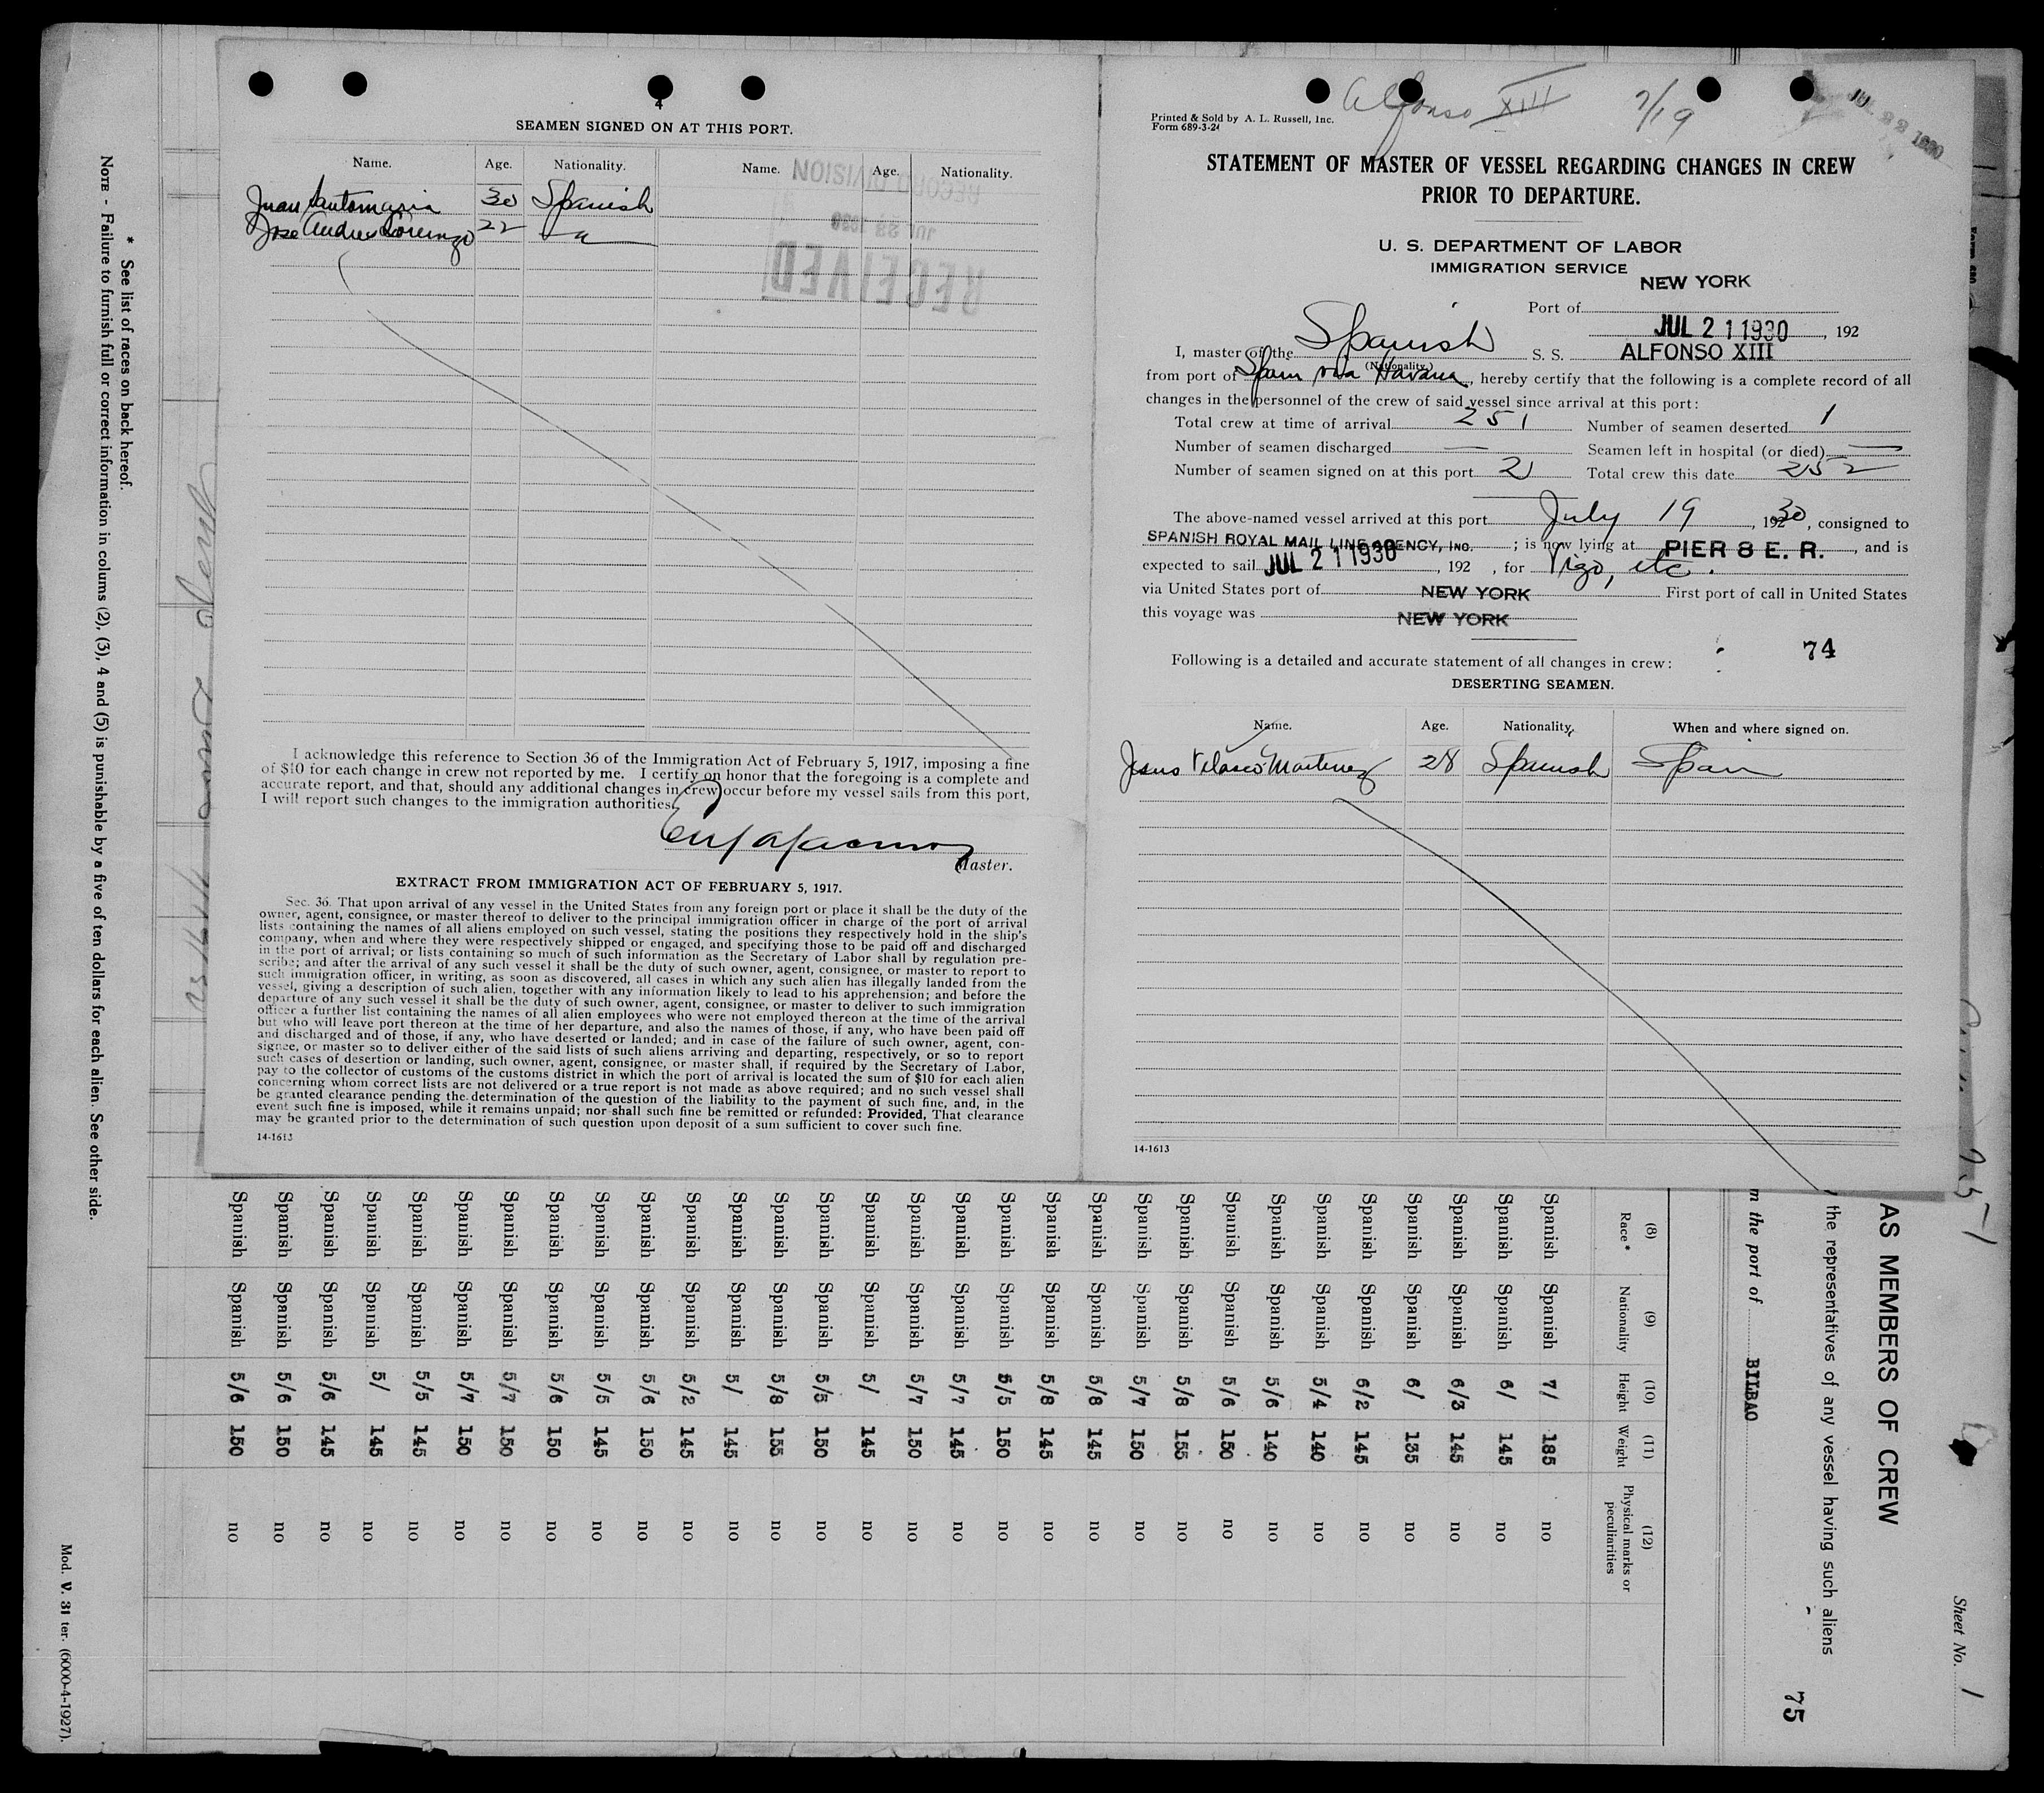 4
SEAMEN SIGNED ON AT THIS PORT.
Name. Age. Nationality. Name. Age. Nationality.
Juan Santamaria 30 Spanish
Jose Andres Lorenzo 22 "
RECORD DIVISION
JUL 23 1930
RECEIVED
I acknowledge this reference to Section 36 of the Immigration Act of February 5, 1917, imposing a fine
of $10 for each change in crew not reported by me. I certify on honor that the foregoing is a complete and
accurate report, and that, should any additional changes in crew occur before my vessel sails from this port,
I will report such changes to the immigration authorities.
Master.
EXTRACT FROM IMMIGRATION ACT OF FEBRUARY 5, 1917.
Sec. 36. That upon arrival of any vessel in the United States from any foreign port or place it shall be the duty of the
owner, agent, consignee, or master thereof to deliver to the principal immigration officer in charge of the port of arrival
lists containing the names of all aliens employed on such vessel, stating the positions they respectively hold in the ship's
company, when and where they were respectively shipped or engaged, and specifying those to be paid off and discharged
in the port of arrival; or lists containing so much of such information as the Secretary of Labor shall by regulation pre-
scribe; and after the arrival of any such vessel it shall be the duty of such owner, agent, consignee, or master to report to
such immigration officer, in writing, as soon as discovered, all cases in which any such alien has illegally landed from the
vessel, giving a description of such alien, together with any information likely to lead to his apprehension; and before the
departure of any such vessel it shall be the duty of such owner, agent, consignee, or master to deliver to such immigration
officer a further list containing the names of all alien employees who were not employed thereon at the time of the arrival
but who will leave port thereon at the time of her departure, and also the names of those, if any, who have been paid off
and discharged and of those, if any, who have deserted or landed; and in case of the failure of such owner, agent, con-
signee, or master so to deliver either of the said lists of such aliens arriving and departing, respectively, or so to report
such cases of desertion or landing, such owner, agent, consignee, or master shall, if required by the Secretary of Labor,
pay to the collector of customs of the customs district in which the port of arrival is located the sum of $10 for each alien
concerning whom correct lists are not delivered or a true report is not made as above required; and no such vessel shall
be granted clearance pending the determination of the question of the liability to the payment of such fine, and, in the
event such fine is imposed, while it remains unpaid; nor shall such fine be remitted or refunded: Provided, That clearance
may be granted prior to the determination of such question upon deposit of a sum sufficient to cover such fine.
14-1613
Alfonso XIII 7/19
JUL 22 1930
Printed & Sold by A. L. Russell, Inc.
Form 689-3-24
STATEMENT OF MASTER OF VESSEL REGARDING CHANGES IN CREW
PRIOR TO DEPARTURE.
U. S. DEPARTMENT OF LABOR
IMMIGRATION SERVICE
NEW YORK
Port of
JUL 21 1930, 192
I, master of the Spanish S. S. ALFONSO XIII
(Nationality.)
from port of Spain via Havana, hereby certify that the following is a complete record of all
changes in the personnel of the crew of said vessel since arrival at this port:
Total crew at time of arrival 251 Number of seamen deserted 1
Number of seamen discharged — Seamen left in hospital (or died) —
Number of seamen signed on at this port 2 Total crew this date 252
The above-named vessel arrived at this port July 19, 1930, consigned to
SPANISH ROYAL MAIL LINE AGENCY, INC.; is now lying at PIER 8 E. R., and is
expected to sail JUL 21 1930, 192 , for Vigo, etc.
via United States port of NEW YORK First port of call in United States
this voyage was NEW YORK
74
Following is a detailed and accurate statement of all changes in crew:
DESERTING SEAMEN.
Name. Age. Nationality. When and where signed on.
Jesus Velasco Martinez 28 Spanish Spain
14-1613
Sheet No. 1
AS MEMBERS OF CREW
the representatives of any vessel having such aliens
75
m the port of BILBAO
(8) Race * (9) Nationality (10) Height (11) Weight (12) Physical marks or peculiarities
Spanish Spanish 7/ 185 no
Spanish Spanish 6/ 145 no
Spanish Spanish 6/3 145 no
Spanish Spanish 6/ 135 no
Spanish Spanish 6/2 145 no
Spanish Spanish 5/4 140 no
Spanish Spanish 5/6 140 no
Spanish Spanish 5/6 150 no
Spanish Spanish 5/8 155 no
Spanish Spanish 5/7 150 no
Spanish Spanish 5/8 145 no
Spanish Spanish 5/8 145 no
Spanish Spanish 5/5 150 no
Spanish Spanish 5/7 145 no
Spanish Spanish 5/7 150 no
Spanish Spanish 5/ 145 no
Spanish Spanish 5/5 150 no
Spanish Spanish 5/8 155 no
Spanish Spanish 5/ 145 no
Spanish Spanish 5/2 145 no
Spanish Spanish 5/6 150 no
Spanish Spanish 5/5 145 no
Spanish Spanish 5/6 150 no
Spanish Spanish 5/7 150 no
Spanish Spanish 5/7 150 no
Spanish Spanish 5/5 145 no
Spanish Spanish 5/ 145 no
Spanish Spanish 5/6 145 no
Spanish Spanish 5/6 150 no
Spanish Spanish 5/6 150 no
* See list of races on back hereof.
NOTE - Failure to furnish full or correct information in colums (2), (3), 4 and (5) is punishable by a five of ten dollars for each alien. See other side.
Mod. V. 31 ter. (6000-4-1927).